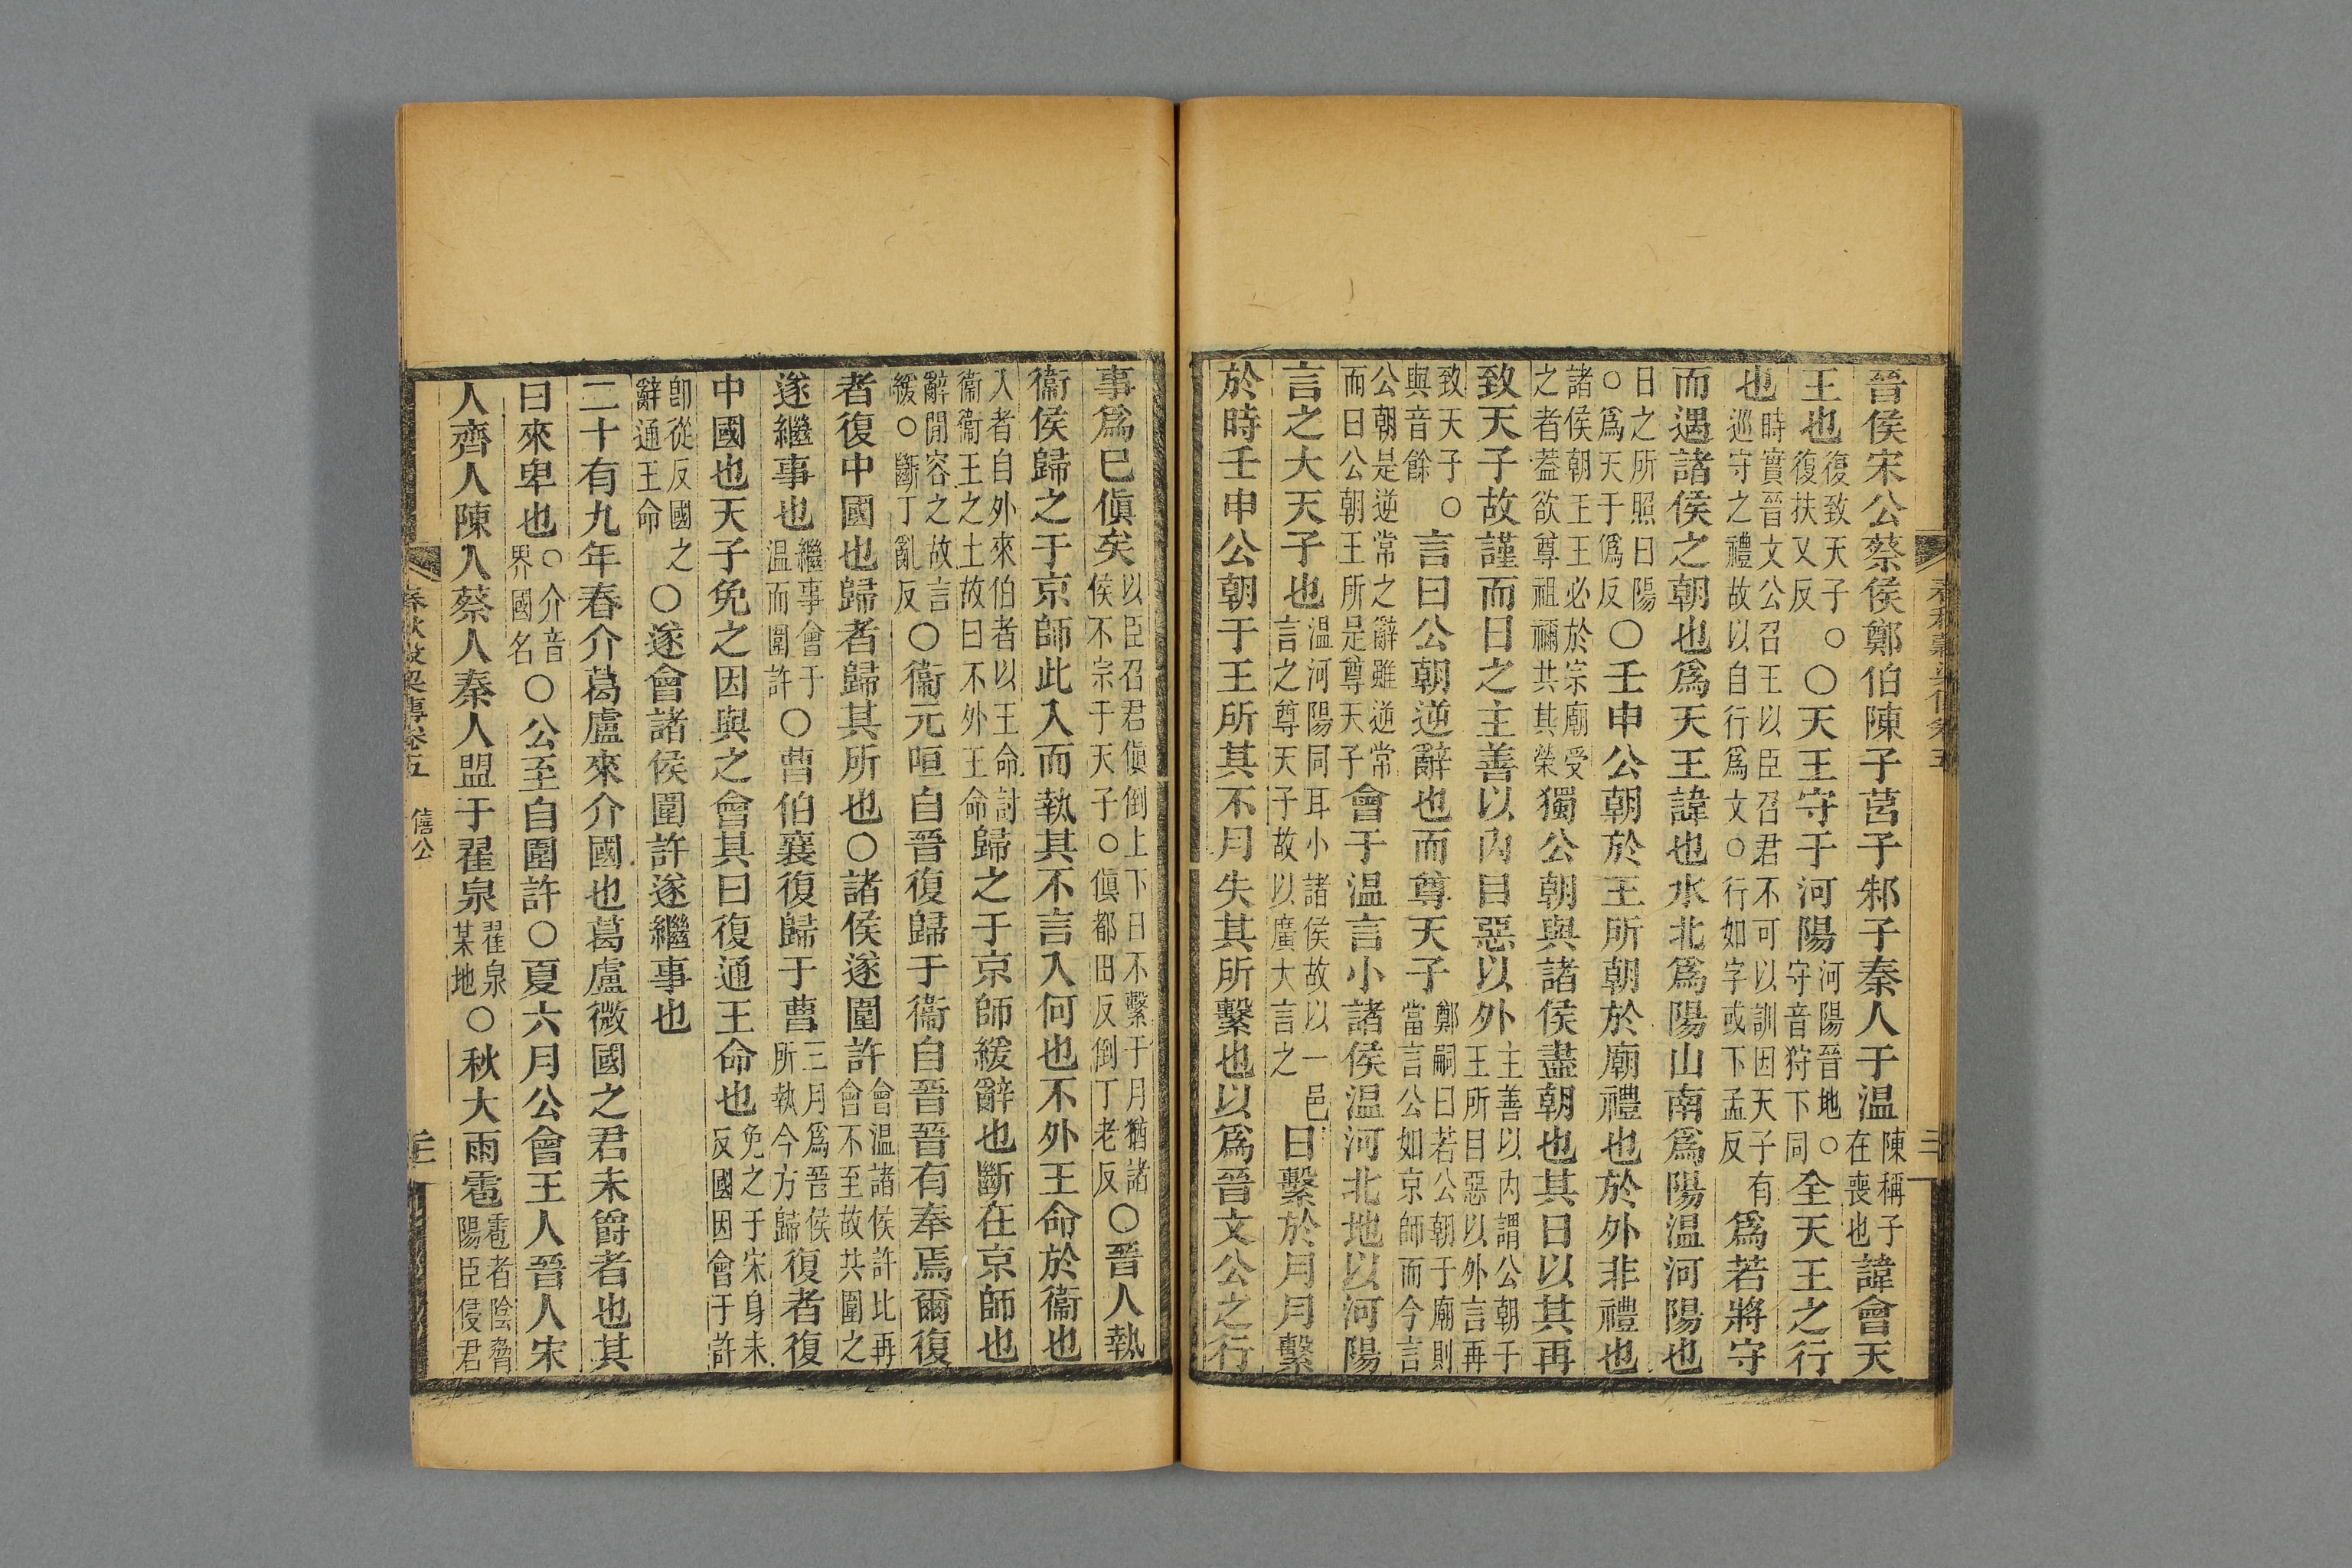 晉侯宋公蔡侯鄭伯陳子莒子邾子秦人于温陳稱子在喪也諱會天
王也復致天子○復扶又反○天王守于河陽河陽晉地○守音狩下同全天王之行
也時實晉文公召王以臣召君不可以訓因天子有巡守之禮故以自行爲文○行如字或下孟反爲若將守
而遇諸侯之朝也爲天王諱也水北爲陽山南爲陽温河陽也
日之所照曰陽○爲天于僞反○壬申公朝於王所朝於廟禮也於外非禮也
諸侯朝王王必於宗廟受之者葢欲尊祖禰共其榮獨公朝與諸侯盡朝也其日以其再
致天子故謹而日之主善以内目惡以外主善以内謂公朝于王所目惡以外言再
致天子○與音餘言曰公朝逆辭也而尊天子鄭嗣曰若公朝于廟則當言公如京師而今言
公朝是逆常之辭雖逆常而曰公朝王所是尊天子會于温言小諸侯温河北地以河陽
言之大天子也温河陽同耳小諸侯故以一邑言之尊天子故以廣大言之日繫於月月繫
於時壬申公朝于王所其不月失其所繫也以爲晉文公之行
事爲已傎矣以臣召君傎倒上下日不繫于月猶諸侯不宗于天子○傎都田反倒丁老反○晉人執
衞侯歸之于京師此入而執其不言入何也不外王命於衞也
入者自外來伯者以王命討衞衞王之士故曰不外王命歸之于京師緩辭也斷在京師也
辭閒容之故言緩○斷丁亂反○衞元咺自晉復歸于衞自晉晉有奉焉爾復
者復中國也歸者歸其所也○諸侯遂圍許會温諸侯許比再會不至故共圍之
遂繼事也繼事會于温而圍許○曹伯襄復歸于曹三月爲晉侯所執今方歸復者復
中國也天子免之因與之會其曰復通王命也免之于宋身未反國因會于許
卽從反國之辭通王命○遂會諸侯圍許遂繼事也
二十有九年春介葛盧來介國也葛盧微國之君未爵者也其
曰來卑也○介音界國名○公至自圍許○夏六月公會王人晉人宋
人齊人陳人蔡人秦人盟于翟泉翟泉某地○秋大雨雹雹者陰脅陽臣侵君
春秋穀梁傳卷五 僖公